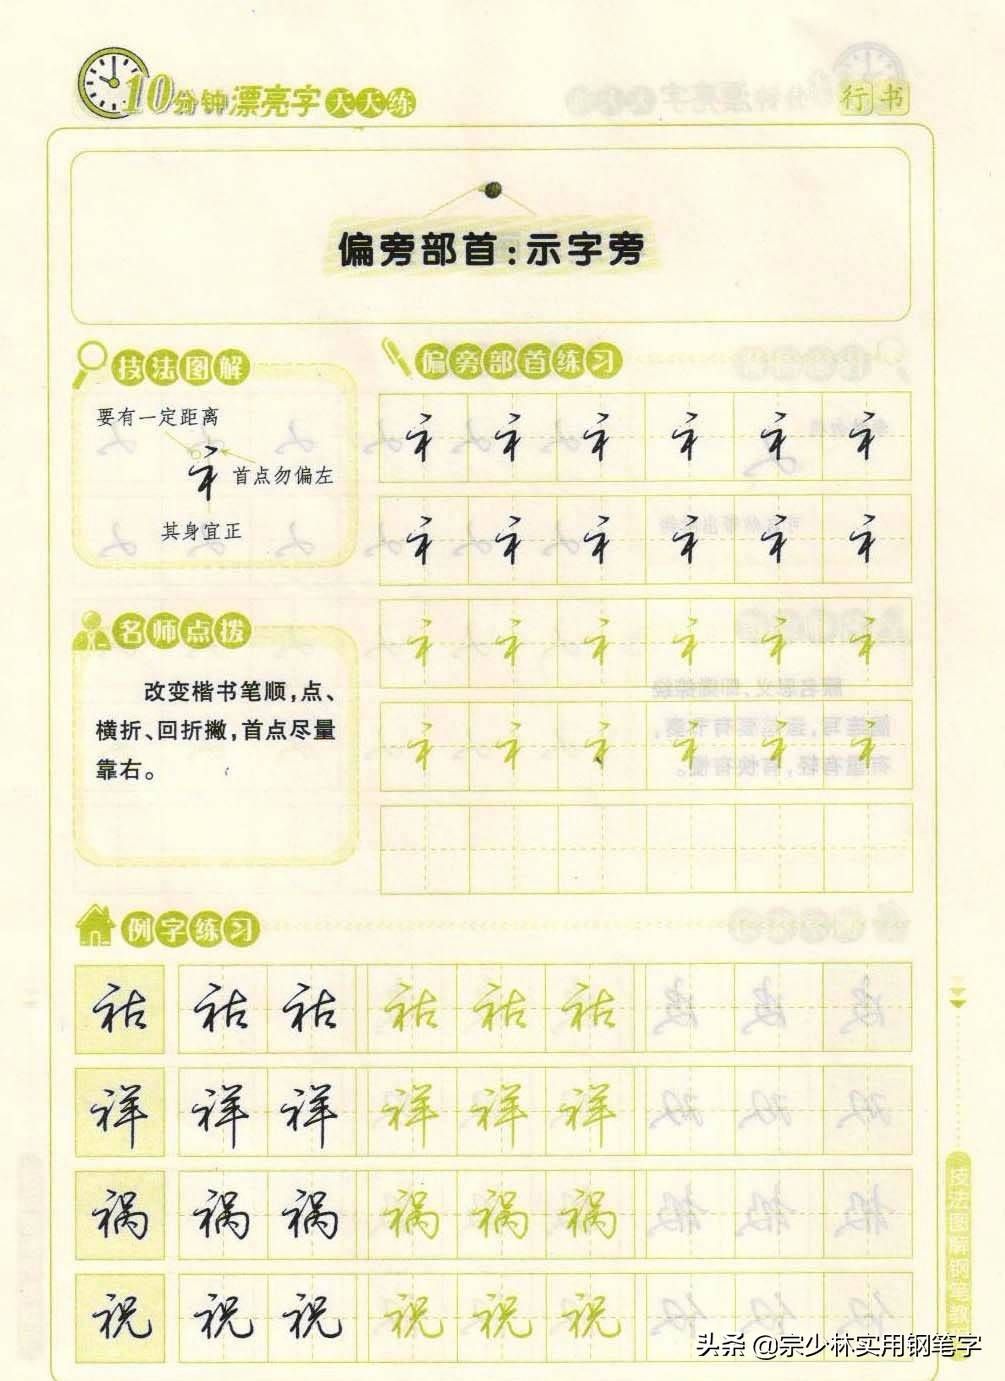 10分钟漂亮字天天练
行书
偏旁部首:示字旁
技法图解
要有一定距离
礻
首点勿偏左
其身宜正
偏旁部首练习
礻 礻 礻 礻 礻 礻
礻 礻 礻 礻 礻 礻
礻 礻 礻 礻 礻 礻
礻 礻 礻 礻 礻 礻
名师点拨
改变楷书笔顺,点、
横折、回折撇,首点尽量
靠右。
例字练习
祜 祜 祜 祜 祜 祜
祥 祥 祥 祥 祥 祥
祸 祸 祸 祸 祸 祸
祝 祝 祝 祝 祝 祝
技法图解钢笔教
头条 @宗少林实用钢笔字